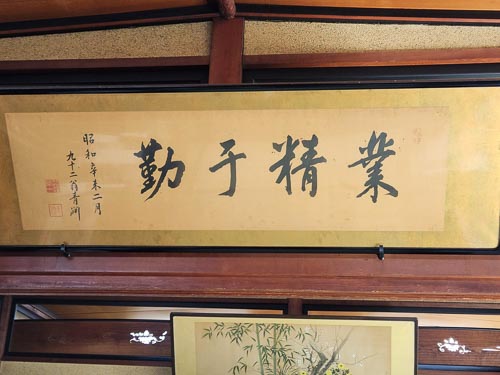 業精于勤
昭和辛未二月
九十二翁青淵